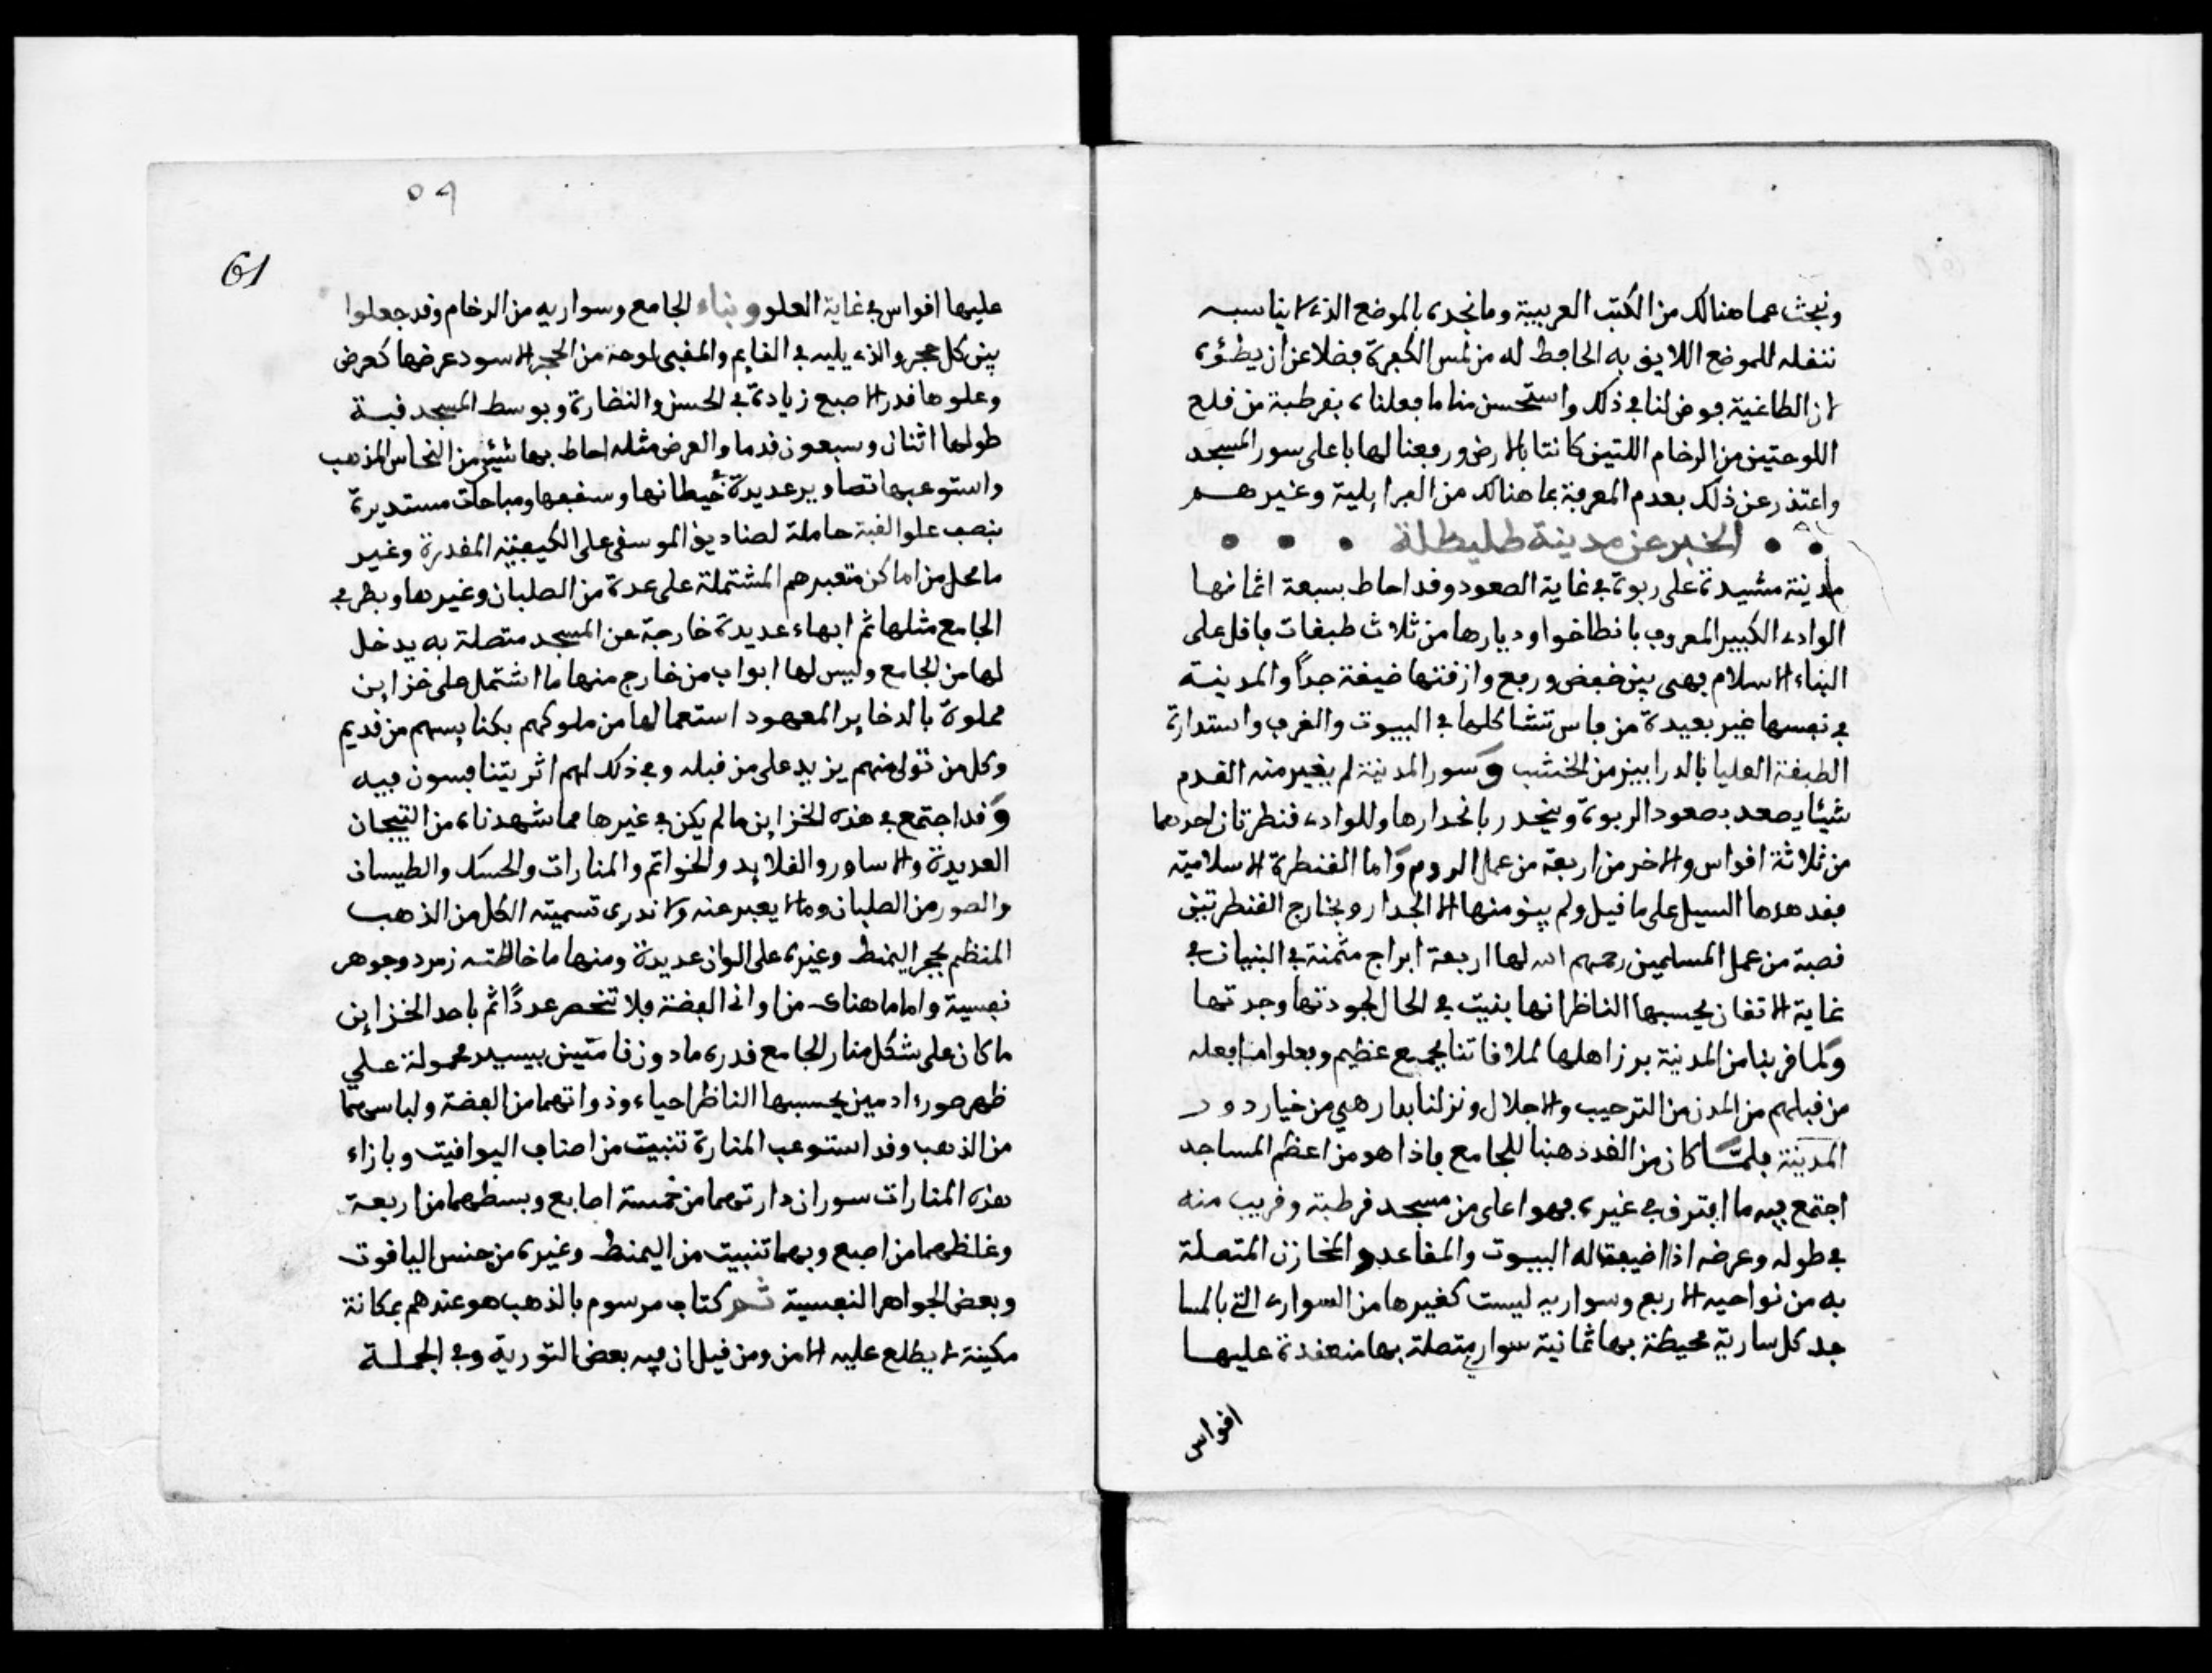 ونبحث عما هنالك من الكتب العربية وما نجده بالموضع الذي لا يناسبه
ننقله للموضع اللايق به الحافظ له من لمس الكفرة فضلا عن ان يطئوه
لان الطاغية فوض لنا في ذلك واستحسن منا ما فعلناه بقرطبة من قلع
اللوحتين من الرخام اللتين كانتا بالارض ورفعنا لها باعلى سور المسجد
واعتذر عن ذلك بعدم المعرفة بما هنالك من الفرايلية وغيرهم
الخبر عن مدينة طليطلة
مدينة مشيدة على ربوة في غاية الصعود وقد احاط بسبعة اثمانها
الواد الكبير المعروف بانطاخوا وديارها من ثلاث طبقات باقل على
البناء الاسلام فهي بين خفض ورفع وازقتها ضيقة جداً والمدينة
في نفسها غير بعيدة من فاس تشاكلها في البيوت والغرف واستدارة
الطبقة العليا بالدرابيز من الخشب وسور المدينة لم يغير منه القدم
شيئا يصعد بصعود الربوة وينحدر بانحدارها وللواد قنطرتان احدهما
من ثلاثة اقواس والاخر من اربعة من عمل الروم واما القنطرة الاسلامية
فقد هدها السيل على ما قيل ولم يبق منها الا الجدار وبخارج القنطرتين
قصبة من عمل المسلمين رحمهم الله لها اربعة ابراج مثمنة في البنيان في
غاية الاتقان يحسبها الناظر انها بنيت في الحال لجودتها وجدتها
ولما قربنا من المدينة برز اهلها لملاقاتنا بجمع عظيم وفعلوا ما فعله
من قبلهم من المدن من الترحيب والاجلال ونزلنا بدار هي من خيار دور
المدينة فلمّا كان من الغد ذهبنا للجامع فاذا هو من اعظم المساجد
اجتمع فيه ما افترق في غيره فهو اعلى من مسجد قرطبة وقريب منه
في طوله وعرضه اذا اضيفت له البيوت والمقاعد والمخازن المتصلة
به من نواحيه الاربع وسواريه ليست كغيرها من السوار التي بالمسا
جد كل سارية محيطة بها ثمانية سوار متصلة بها منعقدة عليها
اقواس
٥٩
61
عليها اقواس في غاية العلو وبناء الجامع وسواريه من الرخام وقد جعلوا
بين كل حجر والذي يليه في القايم والمقبى لوحة من الحجر الاسود عرضها كعرض
وعلوها قدر الاصبع زيادة في الحسن والنضارة وبوسط المسجد قبة
طولها اثنان وسبعون قدما والعرض مثله احاط بها شيئ من النحاس المذهب
واستوعبها تصاوير عديدة بحيطانها وسقفها ومباحات مستديرة
بنصب علو القبة حاملة لصناديق الموسقى على الكيفية المقدرة وغير
ما محل من اماكن متعبدهم المشتملة على عدة من الصلبان وغيرها وبطرفي
الجامع مثلها ثم ابهاء عديدة خارجة عن المسجد متصلة به يدخل
لها من الجامع وليس لها ابواب من خارج منها ما اشتمل على خزاين
مملوة بالدخاير المعهود استعمالها من ملوكهم بكنايسهم من قديم
وكل من تولى منهم يزيد على من قبله وفي ذلك لهم اثر يتنافسون فيه
وقد اجتمع في هذه الخزاين ما لم يكن في غيرها مما شهدناه من التيجان
العديدة والاساور والقلايد والخواتم والمنارات والحسك والطيسان
والصور من الصلبان وما لا يعبر عنه ولا ندرى تسميته الكل من الذهب
المنظم بحجر اليمنط وغيره على الوان عديدة ومنها ما خالطته زمرد وجوهر
نفسية واما ما هناك من اواني الفضة فلا تنحصر عددًا ثم باحد الخزاين
ما كان على شكل منار الجامع قدره ما دون قامتين بيسير محمولة على
ظهر صورة ادميين يحسبها الناظر احياء وذواتهما من الفضة ولباسهما
من الذهب وقد استوعب المنارة تنبيت من اصناف اليواقيت وبازاء
هذه المنارات سوران دارتهما من خمسة اصابع وبسطهما من اربعة
وغلظهما من اصبع وبهما تنبيت من اليمنط وغيره من جنس الياقوت
وبعض الجواهر النفسية ثم كتاب مرسوم بالذهب هو عندهم بمكانة
مكينة لا يطلع عليه الا من ومن قيل ان فيه بعض التورية وفي الجملة